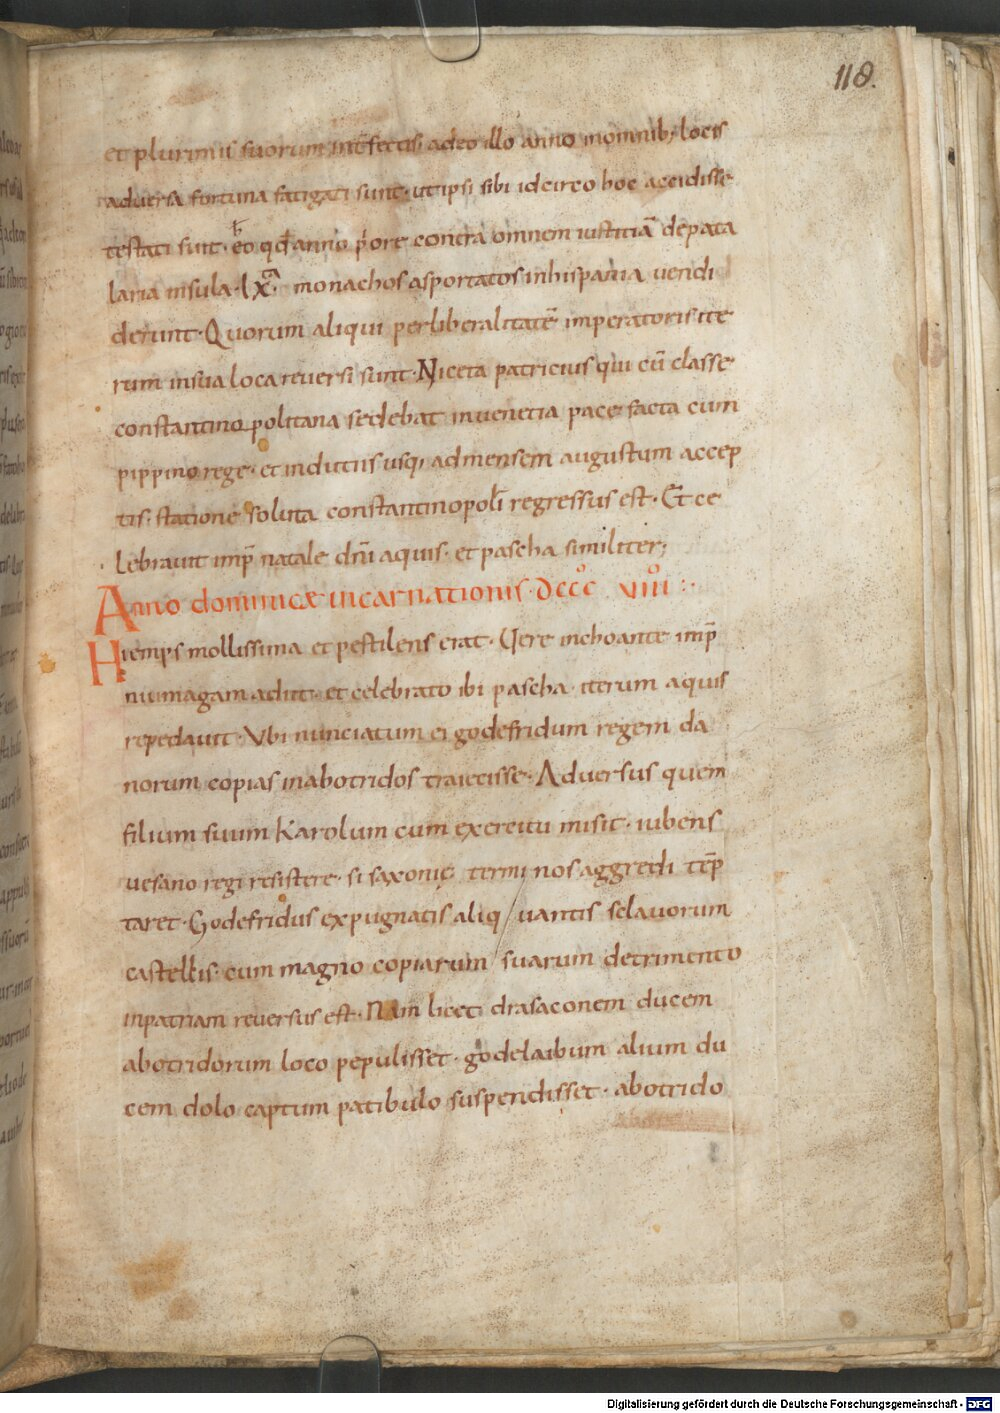 118.
et plurimis suorum int̄fectis, adeo illo anno inomnib; locis
aduersa fortuna fatigati sunt· ut ipsi sibi idcirco hoc accidisse
testati sunt· eo qđ anno p̄ore contra omnem iustitiā depata
laria insula· lxᵃ· monachos asportatos inhispania uendi
derunt· Quorum aliqui perliberalitatē imperatoris ite
rum insua loca reuersi sunt· Niceta patricius qui cū classe
constantinopolitana sedebat inuenetia pace facta cum
pippino rege· et indutiis usq; admensem augustum accep
tis· statione soluta constantinopoli regressus est· Et ce
lebrauit imp̄ natale dn̄i aquis· et pascha similiter;
Anno dominicæ incarnationis· dcccͦ uiiiiͦ :·
Hiemps mollissima et pestilens erat· Uere inchoante imp̄
niumagam adiit· et celebrato ibi pascha· iterum aquis
repedauit· Vbi nunciatum ei godefridum regem da
norum copias inabotridos traiecisse· Aduersus quem
filium suum Karolum cum exercitu misit· iubens
uesano regi resistere· si saxonię terminos aggredi tēp
taret· Godefridus expugnatis aliquantis sclauorum
castellis· cum magno copiarum suarum detrimento
inpatriam reuersus est· Nam licet drasaconem ducem
abotridorum loco pepulisset· godelaibum alium du
cem dolo captum patibulo suspendisset· abotrido
Digitalisierung gefördert durch die Deutsche Forschungsgemeinschaft - DFG